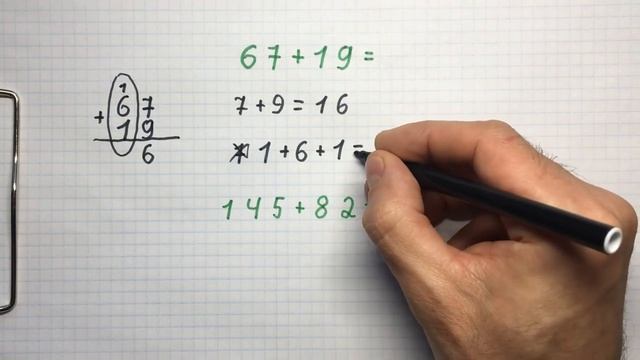 67+19=
1
67
+
19
6
7+9=16
1+6+1=
145+82